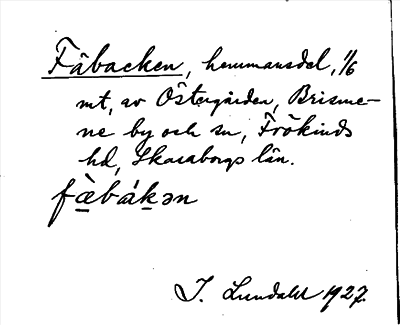 Fäbacken, hemmansdel, 1/6
mt, av Östergården, Brisme-
ne by och sn, Frökinds
hd, Skaraborgs län.
fæ̀bákən
I. Lundahl 1927.